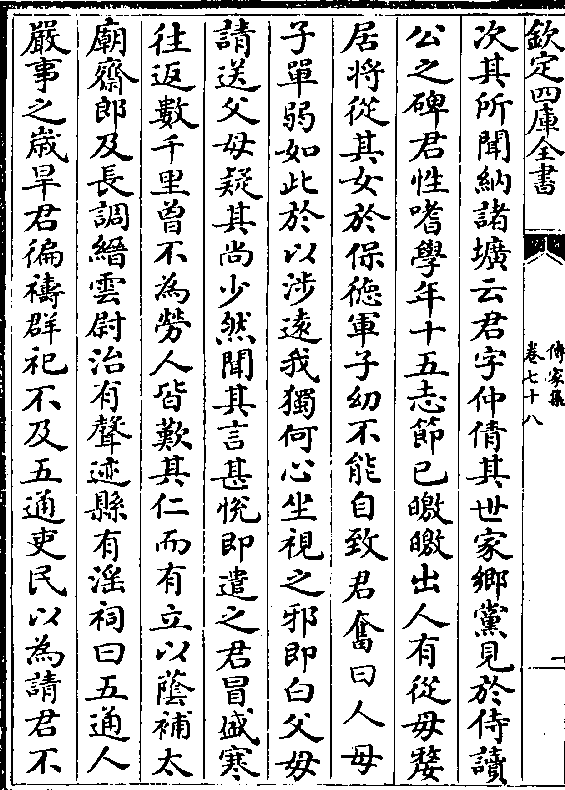 欽定四庫全書
傳家集
卷七十八
次其所聞納諸壙云君字仲倩其世家鄉黨見於侍讀
公之碑君性嗜學年十五志節已皦皦出人有從母嫠
居將從其女於保德軍子幼不能自致君奮曰人母
子單弱如此於以涉逺我獨何心坐視之邪即白父母
請送父母疑其尚少然聞其言甚恱即遣之君冒盛寒
往返數千里曾不為勞人皆歎其仁而有立以蔭補太
廟齋郎及長調縉雲尉治有聲迹縣有淫祠曰五通人
嚴事之歳旱君徧禱群祀不及五通吏民以為請君不